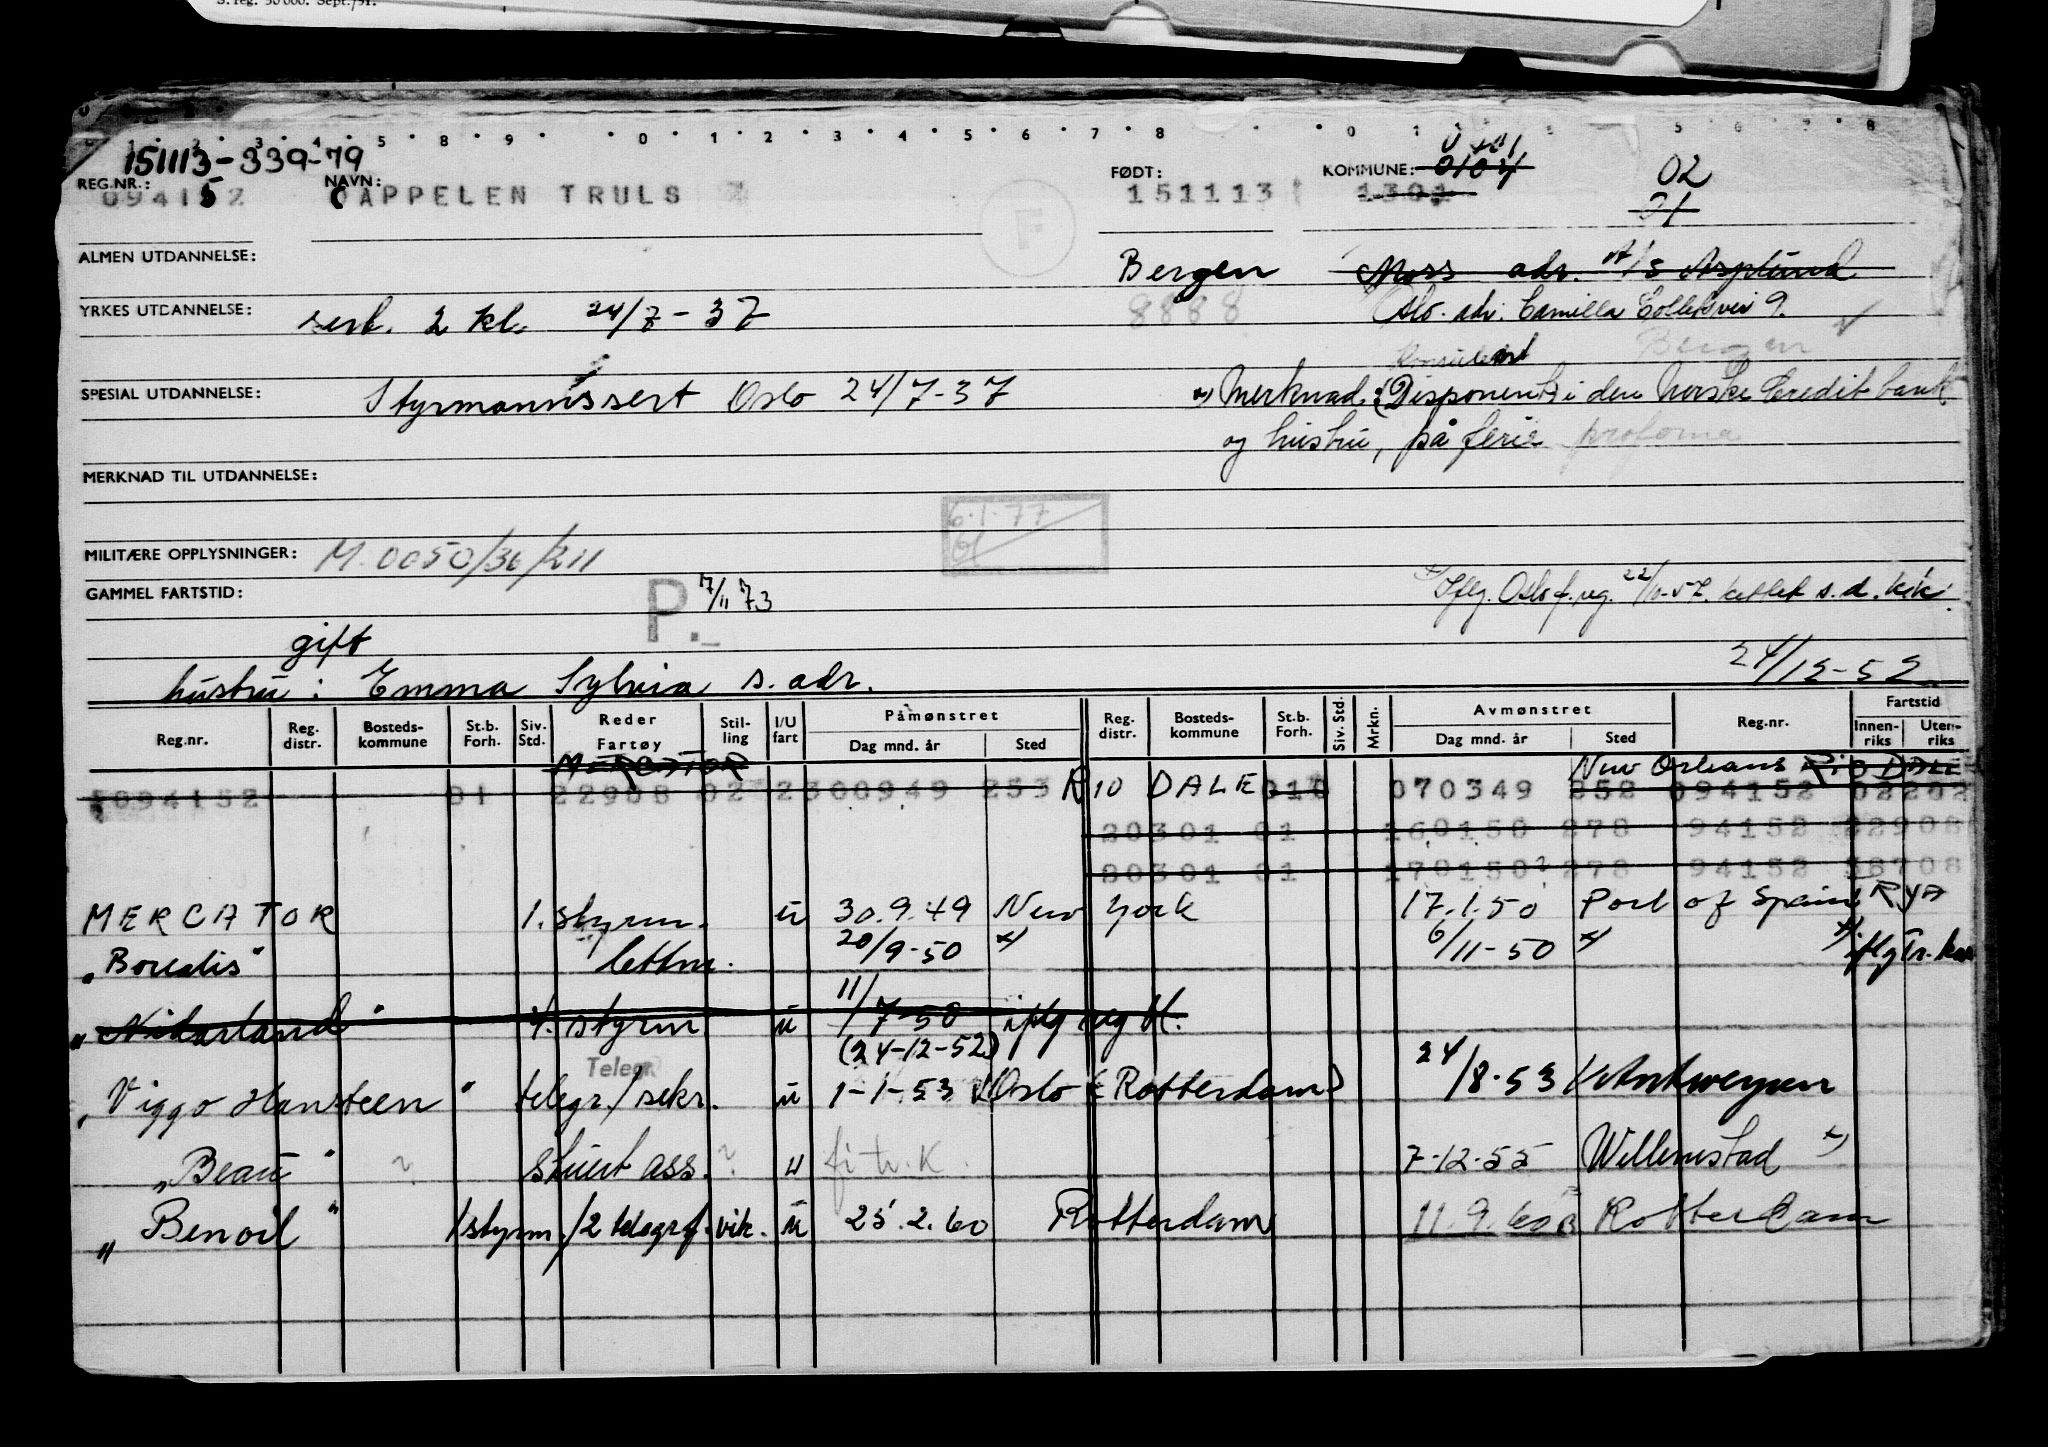 S. reg. 50 000. Sept./51.
151113-339-79
REG.NR.: NAVN: FØDT: KOMMUNE: 0104
094152 CAPPELEN TRULS 151113 1301 02
01
F
ALMEN UTDANNELSE: Bergen Moss adr. A/S Asplund
YRKES UTDANNELSE: sert. 2 kl. 24/7-37 8888 Oslo. adr: Camilla Colletsvei 9.
Bergen
Konsulent
SPESIAL UTDANNELSE: Styrmannssert Oslo 24/7-37 Merknad: (Disponent) i den norske Creditbank
og hustru, på ferie proforma
MERKNAD TIL UTDANNELSE:
6.1.77
MILITÆRE OPPLYSNINGER: M.0050/36/KII
GAMMEL FARTSTID: P. 7/11 73 Iflg. Oslo f.reg. 22/10-57. slettet s.d.
gift
hustru: Emma Sylvia s. adr. 24/12-52
Reg.nr. Reg. distr. Bosteds-kommune St.b. Forh. Siv. Std. Reder Fartøy Stil-ling I/U fart Påmønstret Dag mnd. år Sted Reg. distr. Bosteds-kommune St.b. Forh. Siv. Std. Mrkn. Avmønstret Dag mnd. år Sted Reg.nr. Fartstid Innen-riks Uten-riks
MERCATOR New Orleans RIO DALE
094152 01 22908 02 2 300949 253 RIO DALE 010 070349 252 094152 02202
20301 01 160150 278 94152 22908
80301 01 170150 278 94152 56708
MERCATOR 1. styrm. u 30.9.49 New York 17.1.50 Port of Spain RYA
"Borealis" lettm. 20/9-50 x) 6/11-50 x) x) iflg Tr. kon
"Nidarland" 4. styrm u 11/7-50 iflg reg bl.
(24-12-52)
Telegr.
"Viggo Hansteen" telegr./sekr. u 1-1-53 Oslo (Rotterdam) 24/8-53 Antwerpen
"Beau" ? stuert ass. ? u fi tr. K. 7-12-55 Willemstad x)
"Benoil" 1 styrm/2 telegrf. vik. u 25.2.60 Rotterdam 11.9.60 Rotterdam